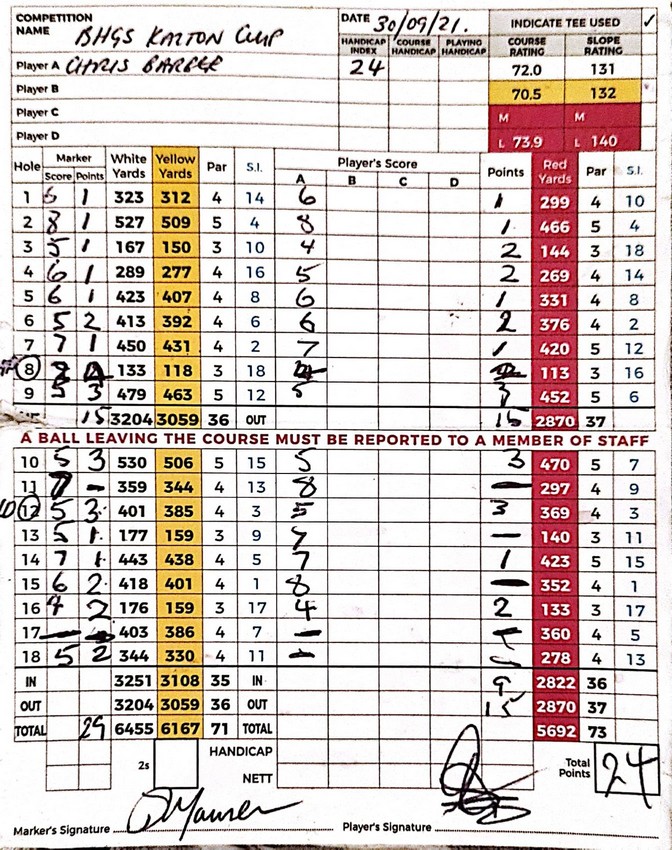 COMPETITION NAME BHGS KALTON CUP DATE 30/09/21. INDICATE TEE USED ✓
HANDICAP INDEX COURSE HANDICAP PLAYING HANDICAP COURSE RATING SLOPE RATING
Player A CHRIS 24 72.0 131
Player B 70.5 132
Player C M M
Player D L 73.9 L 140
Hole Marker White Yards Yellow Yards Par S.I. Player's Score Points Red Yards Par S.I.
Score Points A B C D
1 1 323 312 4 14 6 1 299 4 10
2 8 1 527 509 5 4 8 1 466 5 4
3 5 1 167 150 3 10 4 2 144 3 18
4 6 1 289 277 4 16 5 2 269 4 14
5 6 1 423 407 4 8 6 1 331 4 8
6 5 2 413 392 4 6 6 2 376 4 2
7 7 1 450 431 4 2 7 1 420 5 12
8 133 118 3 18 113 3 16
9 5 3 479 463 5 12 5 3 452 5 6
15 3204 3059 36 OUT 15 2870 37
A BALL LEAVING THE COURSE MUST BE REPORTED TO A MEMBER OF STAFF
10 5 3 530 506 5 15 5 3 470 5 7
11 7 – 359 344 4 13 8 — 297 4 9
12 5 3 401 385 4 3 5 3 369 4 3
13 5 1 177 159 3 9 7 — 140 3 11
14 7 1 443 438 4 5 7 1 423 5 15
15 6 2 418 401 4 1 8 — 352 4 1
16 4 2 176 159 3 17 4 2 133 3 17
17 — 403 386 4 7 — 360 4 5
18 5 2 344 330 4 11 – 278 4 13
IN 3251 3108 35 IN 9 2822 36
OUT 3204 3059 36 OUT 15 2870 37
TOTAL 29 6455 6167 71 TOTAL 5692 73
2s HANDICAP Total Points 24
NETT
Marker's Signature Player's Signature